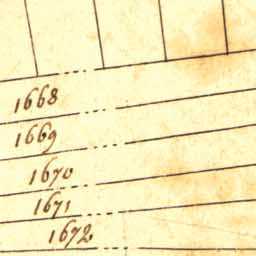 1668
1669
1670
1671
1672